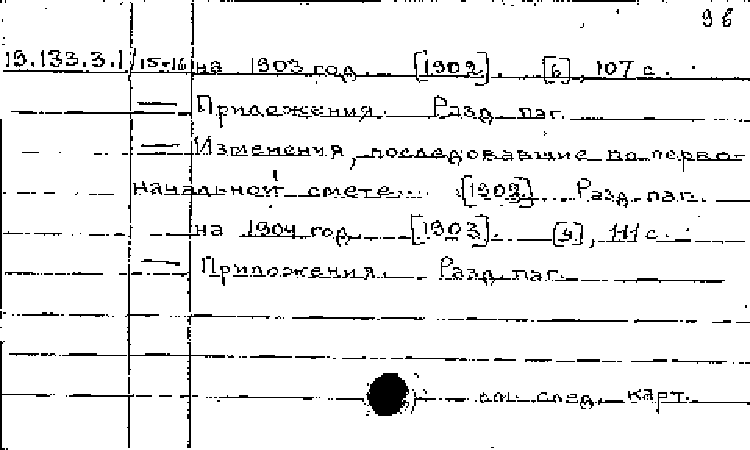 96
19.133.3.1/15-16 на 1903 год. [1902]. [6], 107 с.
— Приложения. Разд. паг.
— Изменения, последовавшие по перво-
начальной смете... [1902]. Разд. паг.
на 1904 год. [1903]. [4], 111 с.
— Приложения. Разд. паг.
см. след. карт.